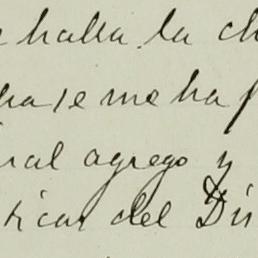 halla la ch
ha se me ha
ral agrego y
ticas del Dis